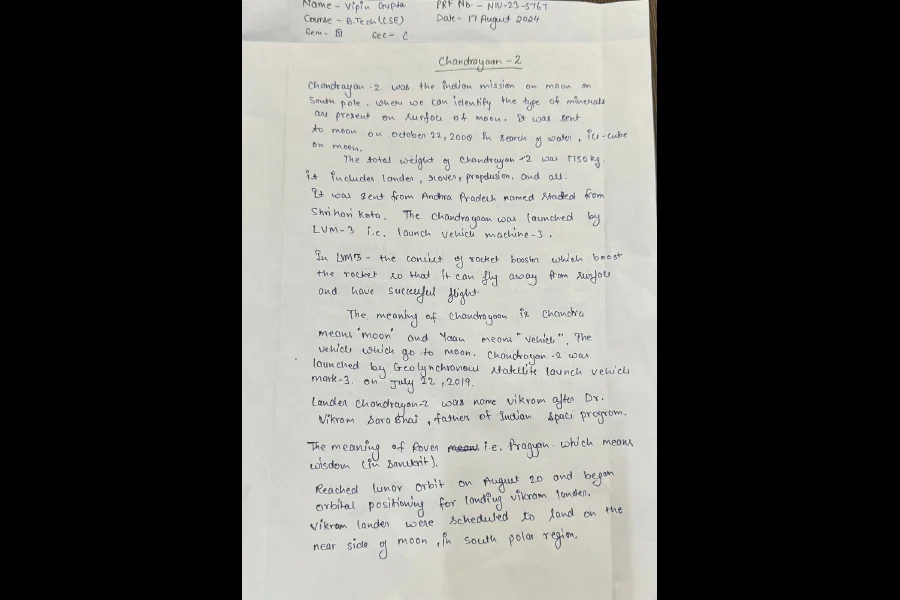 Name - Vipin Gupta PRF No. - NIU-23-5767
Course - B.Tech (CSE) Date - 17 August 2024
Sem - III Sec - C
Chandrayaan - 2
Chandrayan - 2 was the indian mission on moon on
South pole. where we can identify the type of minerals
are present on surface of moon. It was sent
to moon on october 22, 2008 in search of water, ice-cube
on moon.
The total weight of Chandrayan -2 was kg.
it includes lander, rover, propulsion. and all.
It was sent from Andhra Pradesh named started from
Shri hari kota. The Chandrayaan was launched by
LVM-3 i.e. launch vehicle machine-3.
In LVM3 - the consist of rocket booster which boost
the rocket so that it can fly away from surface
and have successful flight.
The meaning of chandrayaan is chandra
means 'moon' and Yaan means "vehicle". The
vehicle which go to moon. Chandrayan -2 was
launched by Geolynchronous statellite launch vehicle
mark-3. on July 22, 2019.
Lander Chandrayan-2 was name vikram after Dr.
Vikram Sara Bhai, father of Indian space program.
The meaning of Rover i.e. Pragyan which means
wisdom (in sanskrit).
Reached lunar orbit on August 20 and began
orbital positioning for landing vikram lander.
Vikram lander were scheduled to land on the
near side of moon, in south polar region.